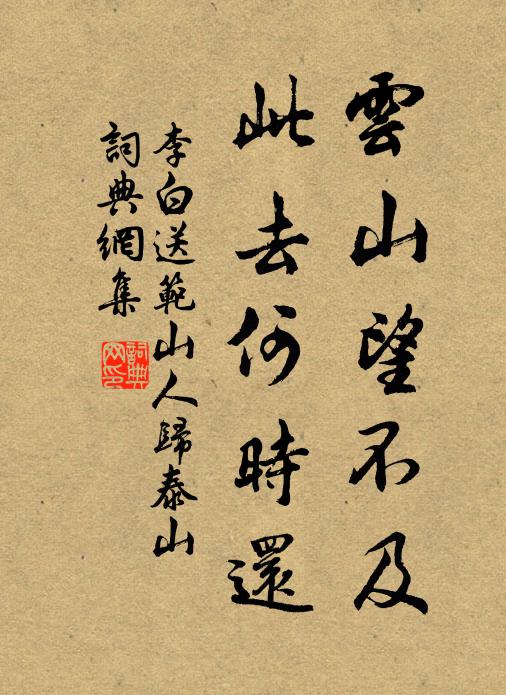 雲山望不及
此去何時還
李白送範山人歸泰山
詞典網集
詞典網印